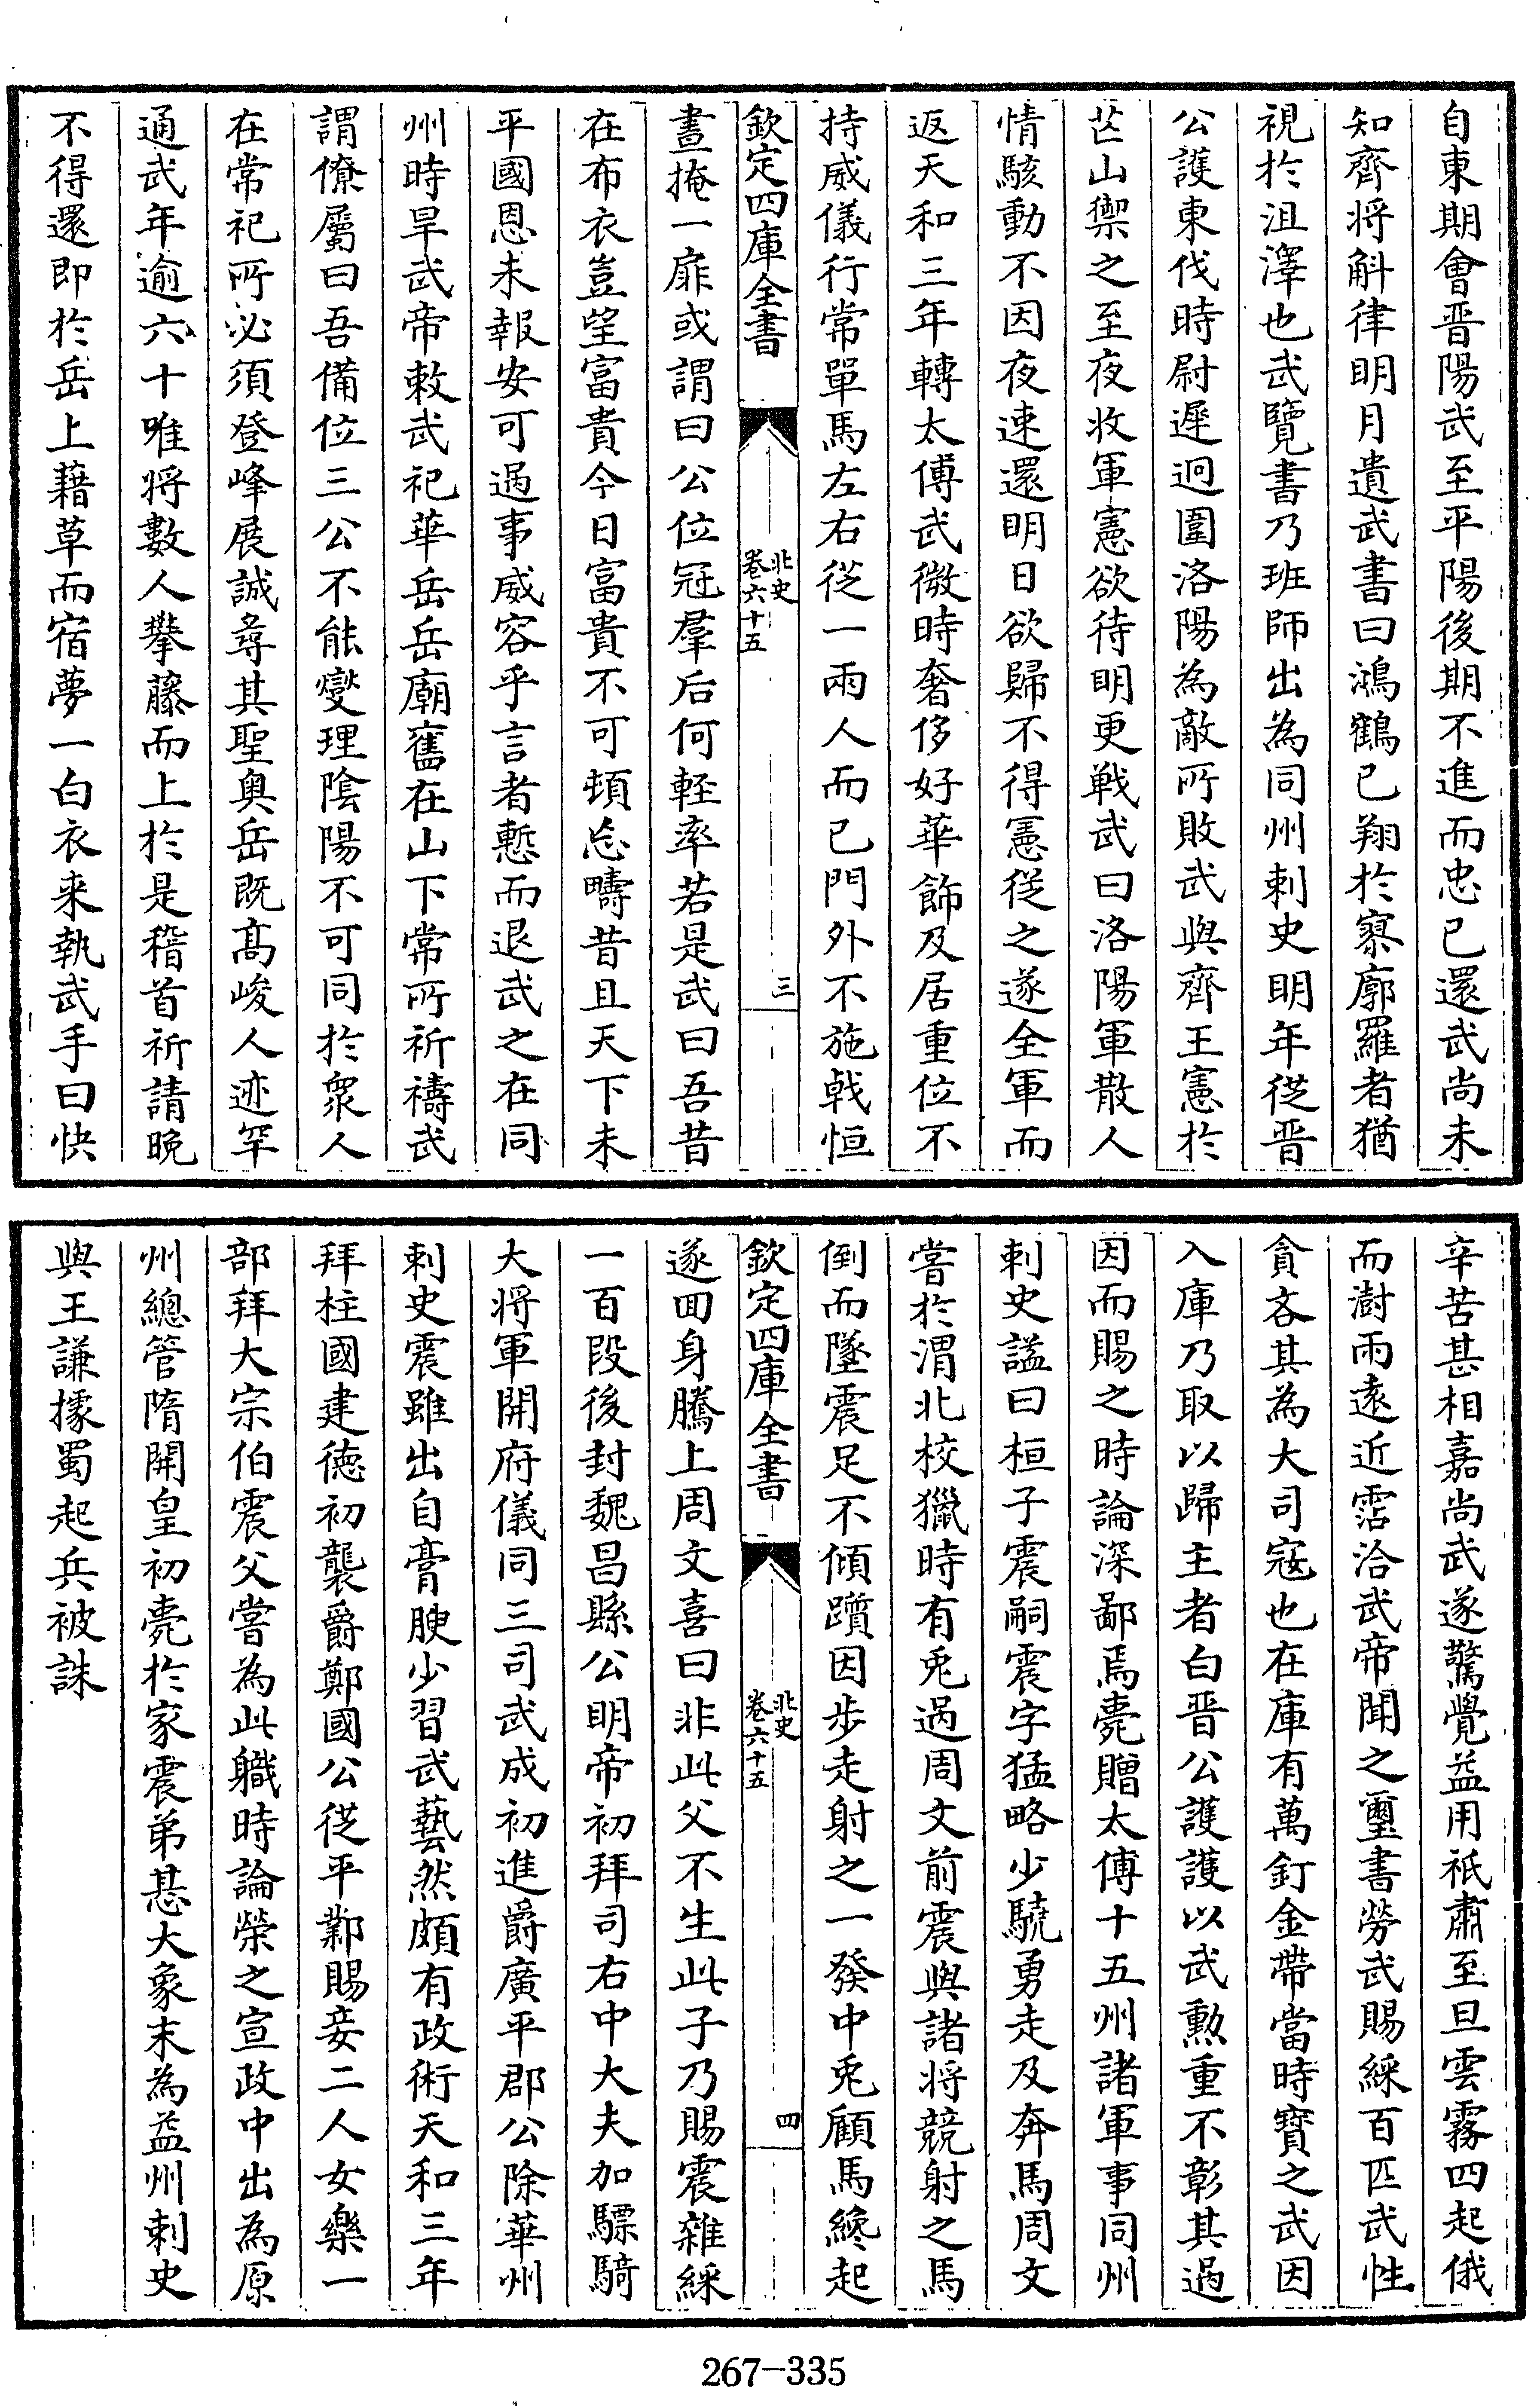 自東期會晉陽武至平陽後期不進而忠已還武尚未
知齊将斛律明月遺武書曰鴻鶴已翔於寥廓羅者猶
視於沮澤也武覽書乃班師出為同州刺史明年從晉
公護東伐時尉遲迥圍洛陽為敵所敗武與齊王憲於
芒山禦之至夜收軍憲欲待明更戰武曰洛陽軍散人
情駭動不因夜速還明日欲歸不得憲從之遂全軍而
返天和三年轉太傅武微時奢侈好華飾及居重位不
持威儀行常單馬左右從一兩人而已門外不施戟恒
欽定四庫全書
北史
卷六十五
三
晝掩一扉或謂曰公位冠羣后何輕率若是武曰吾昔
在布衣豈望富貴今日富貴不可頓忘疇昔且天下未
平國恩未報安可過事威容乎言者慙而退武之在同
州時旱武帝敕武祀華岳岳廟舊在山下常所祈禱武
謂僚屬曰吾備位三公不能燮理陰陽不可同於衆人
在常祀所必須登峰展誠尋其聖奧岳既髙峻人迹罕
通武年逾六十唯将數人攀藤而上於是稽首祈請晚
不得還即於岳上藉草而宿夢一白衣来執武手曰快
辛苦甚相嘉尚武遂驚覺益用祇肅至旦雲霧四起俄
而澍雨遠近霑洽武帝聞之璽書勞武賜綵百匹武性
貪吝其為大司宼也在庫有萬釘金帶當時寳之武因
入庫乃取以歸主者白晉公護護以武勲重不彰其過
因而賜之時論深鄙焉薨贈太傅十五州諸軍事同州
刺史諡曰桓子震嗣震字猛略少驍勇走及奔馬周文
嘗於渭北校獵時有兎過周文前震與諸将競射之馬
倒而墜震足不傾躓因步走射之一發中兎顧馬纔起
欽定四庫全書
北史
卷六十五
四
遂回身騰上周文喜曰非此父不生此子乃賜震雜綵
一百段後封魏昌縣公明帝初拜司右中大夫加驃騎
大将軍開府儀同三司武成初進爵廣平郡公除華州
刺史震雖出自膏腴少習武藝然頗有政術天和三年
拜柱國建徳初襲爵鄭國公從平鄴賜妾二人女樂一
部拜大宗伯震父嘗為此職時論榮之宣政中出為原
州總管隋開皇初薨於家震弟惎大象末為益州刺史
與王謙據蜀起兵被誅
267-335